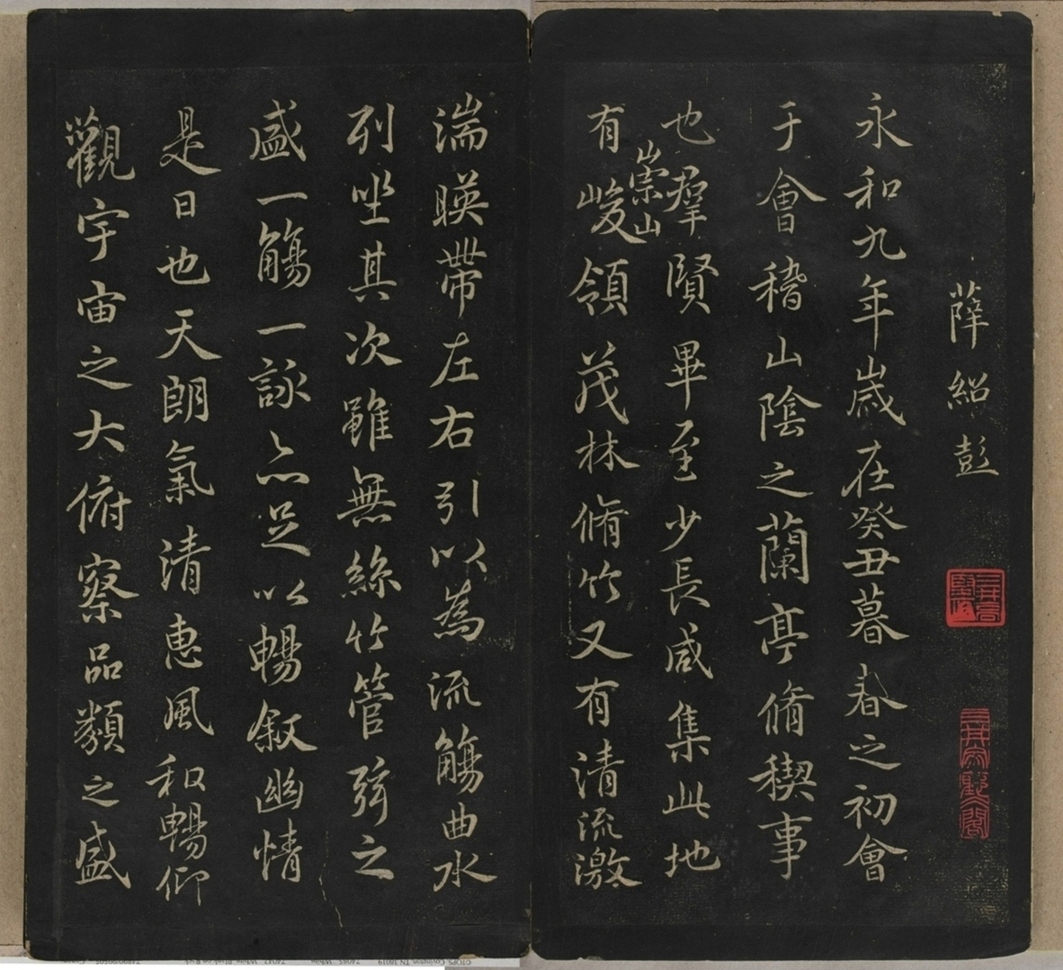 薛紹彭
永和九年歲在癸丑暮春之初會
于會稽山陰之蘭亭脩稧事
也群賢畢至少長咸集此地
有崇山峻領茂林脩竹又有清流激
湍暎帶左右引以為流觴曲水
列坐其次雖無絲竹管弦之
盛一觴一詠亦足以暢叙幽情
是日也天朗氣清惠風和暢仰
觀宇宙之大俯察品類之盛